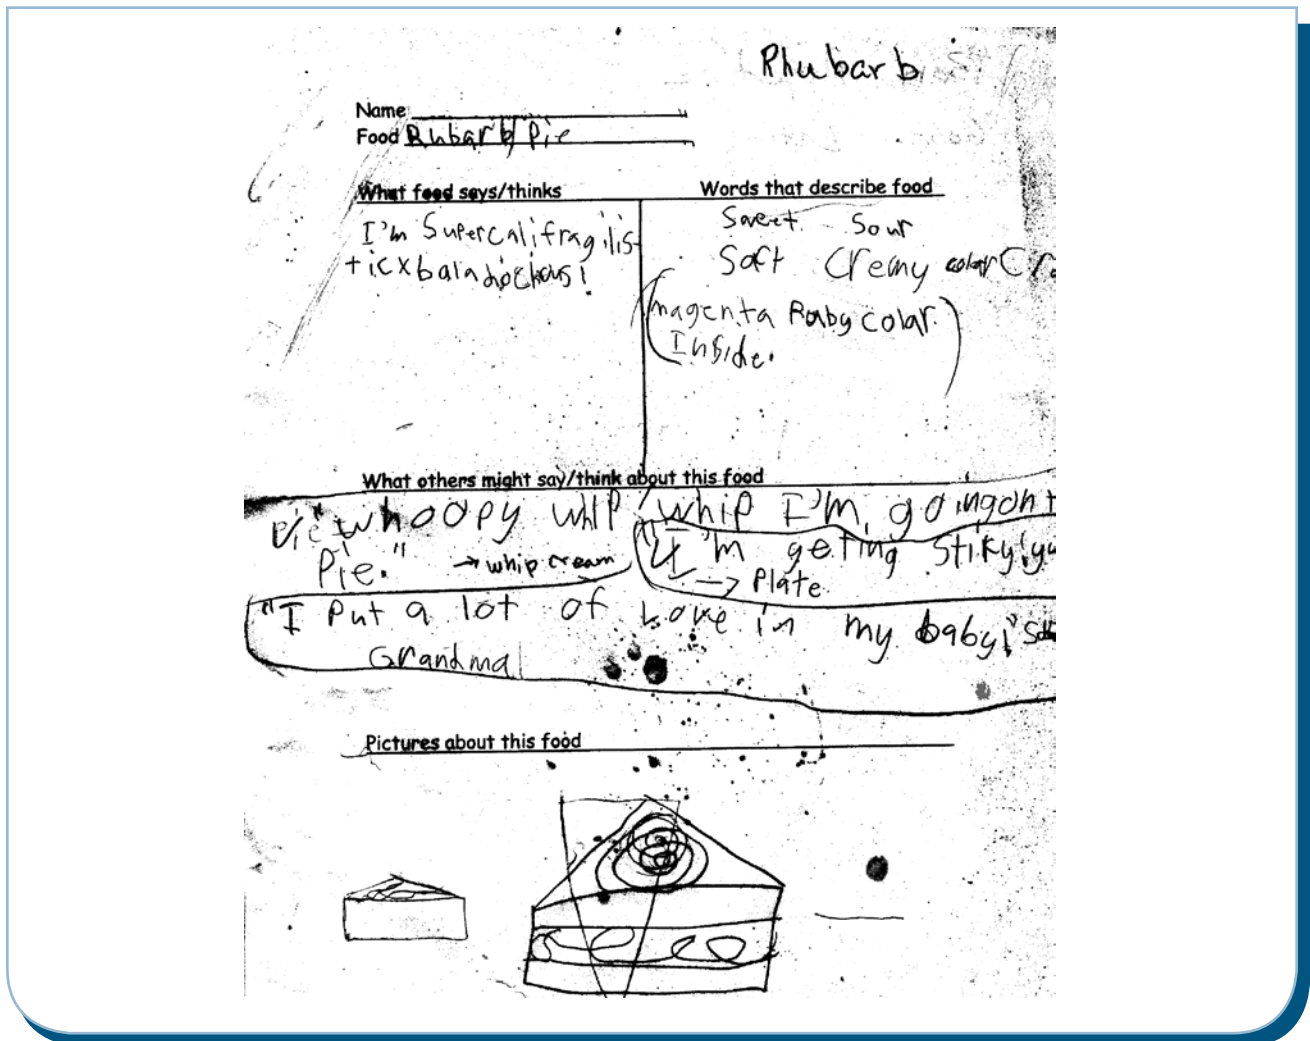 Rhubarb
Name
Food Rubarb Pie
What food says/thinks
Words that describe food
I'm Supercalifragilis
ticxbaladocious!
Sweet Sour
Soft Cremy color
(magenta Ruby colar
Inside.)
What others might say/think about this food
"Whoopy whip whip I'm going ont
Pie."
→ whip cream
"I'm geting Stiky!
→ Plate
"I Put a lot of Love in my baby!"
Grandma
Pictures about this food